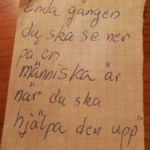 Enda gången
du ska se ner
på en
människa är
när du ska
hjälpa den upp"